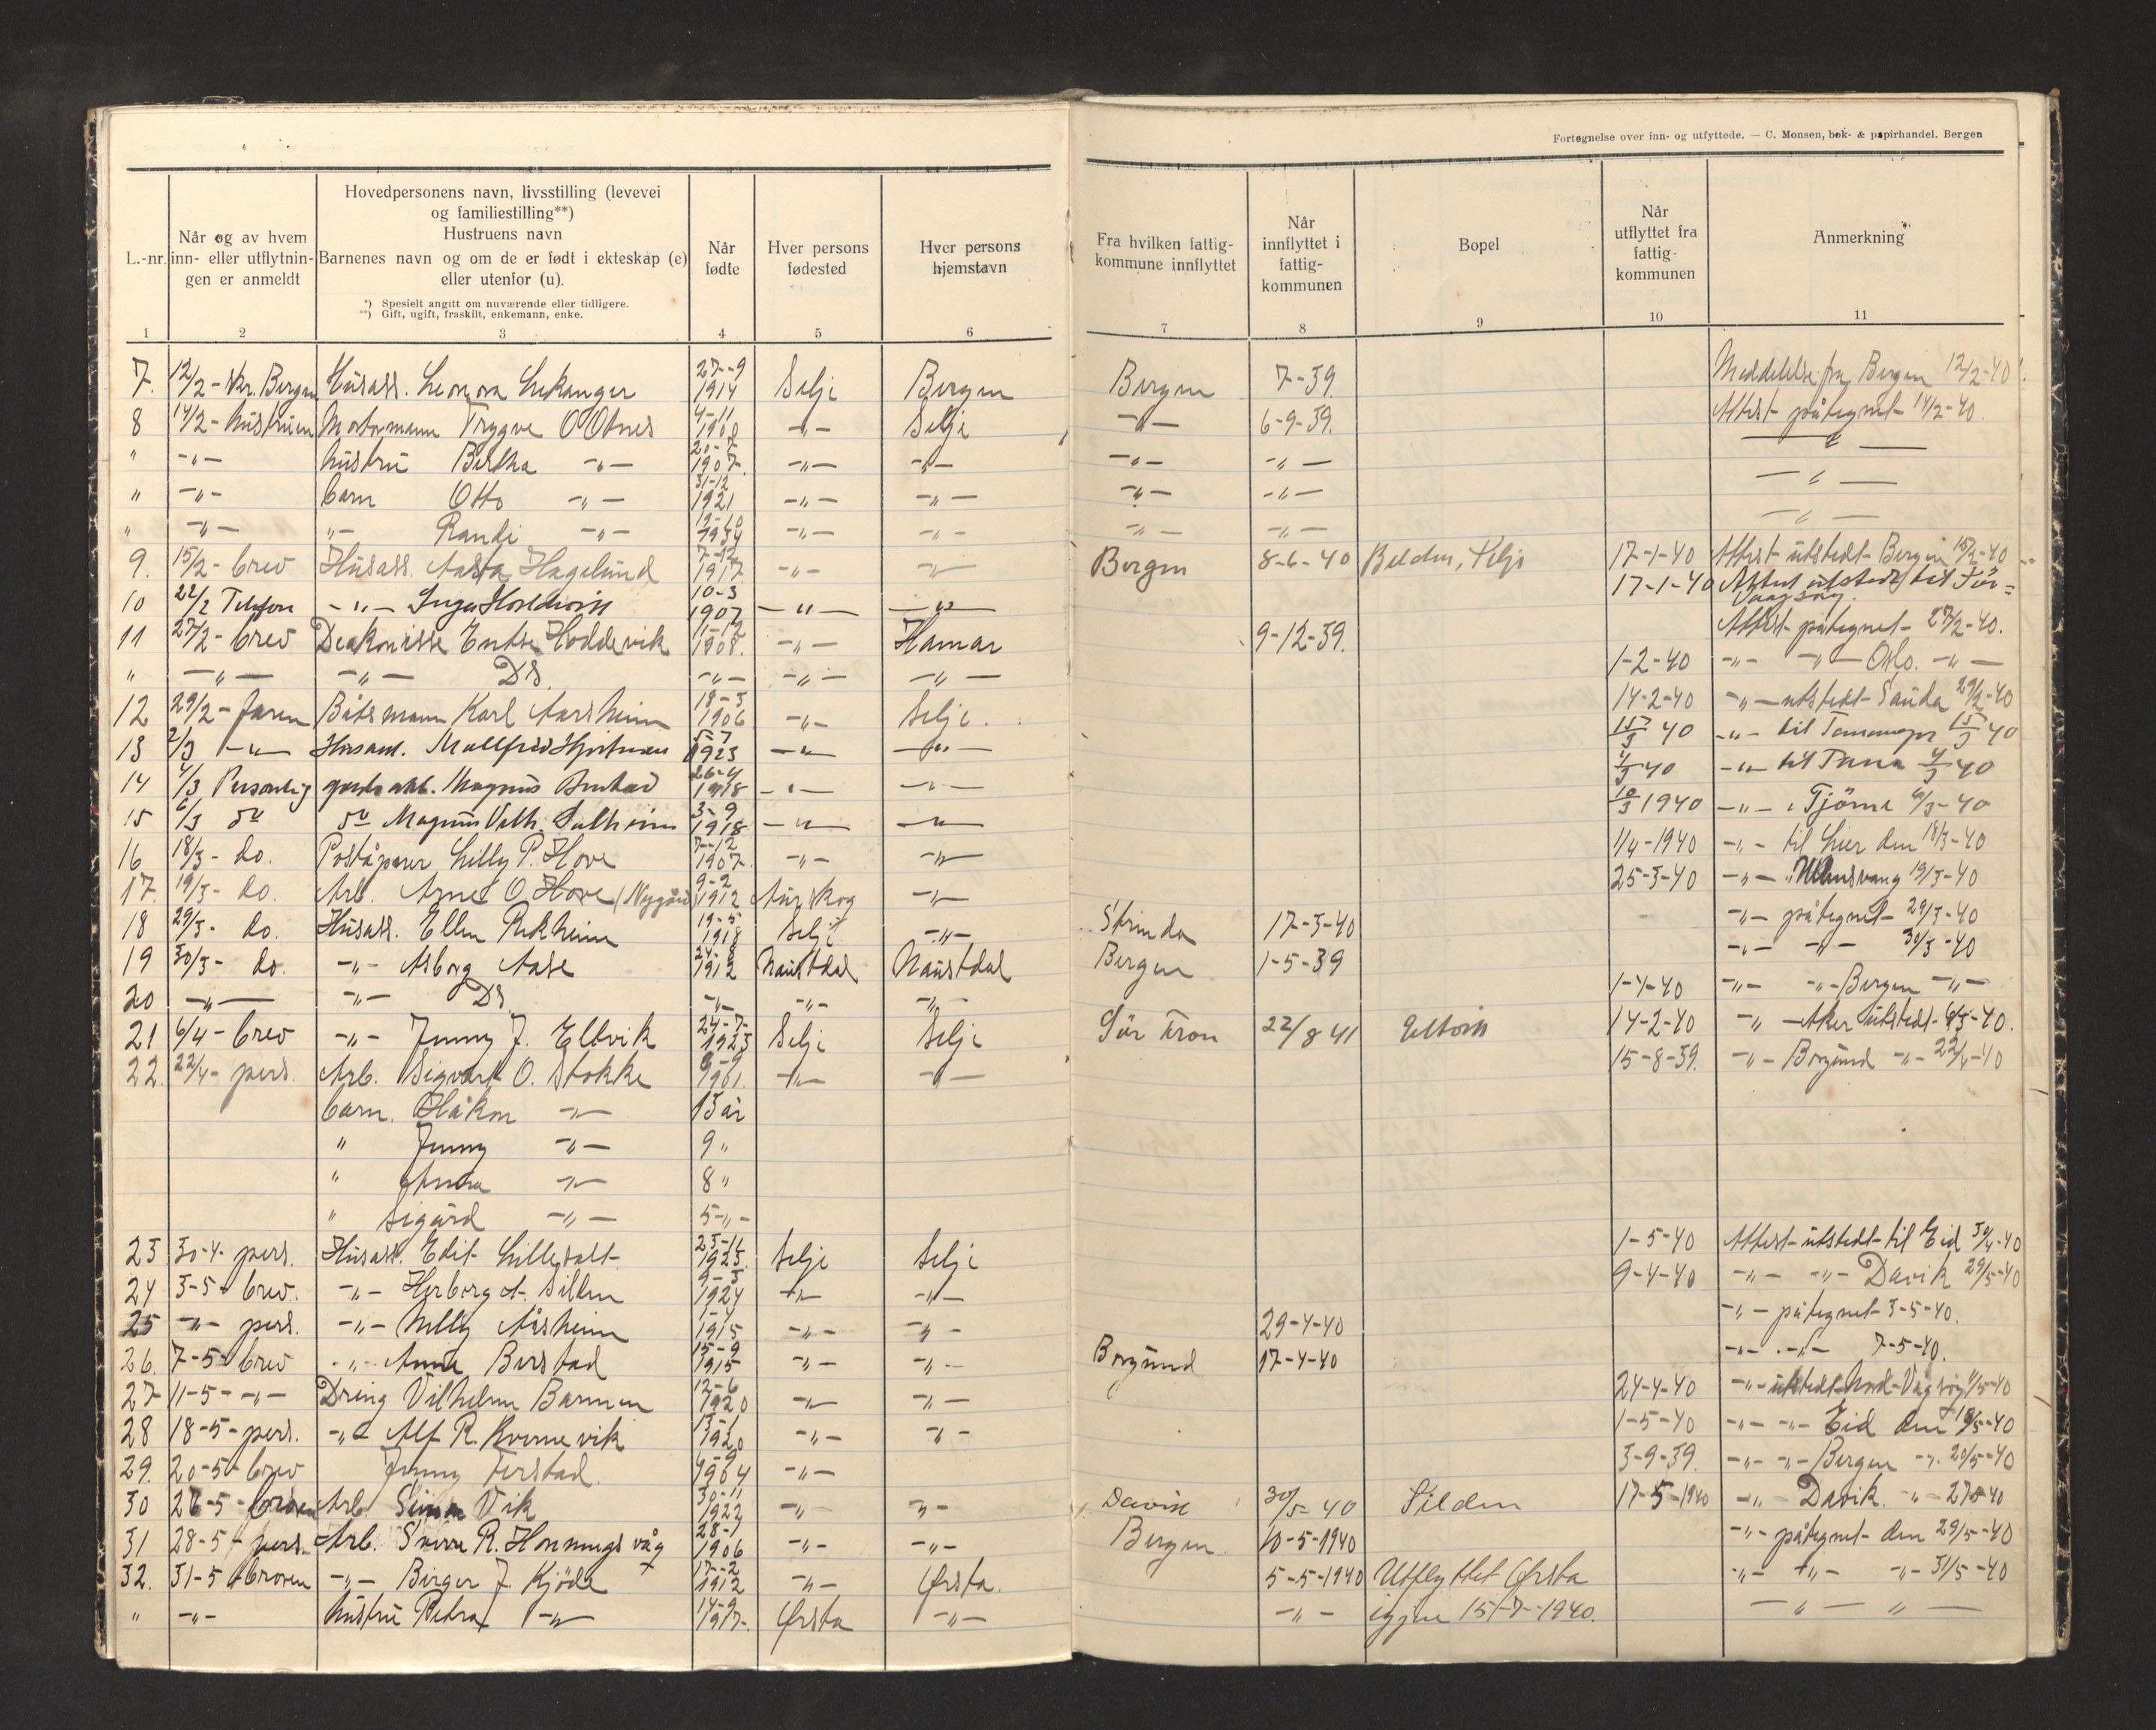 Fortegnelse over inn- og utflyttede. — C. Monsen, bok- & papirhandel. Bergen
L.-nr. Når og av hvem inn- eller utflytningen er anmeldt Hovedpersonens navn, livsstilling (levevei og familiestilling**) Hustruens navn Barnenes navn og om de er født i ekteskap (e) eller utenfor (u). *) Spesielt angitt om nuværende eller tidligere. **) Gift, ugift, fraskilt, enkemann, enke. Når fødte Hver persons fødested Hver persons hjemstavn Fra hvilken fattigkommune innflyttet Når innflyttet i fattigkommunen Bopel Når utflyttet fra fattigkommunen Anmerkning
1 2 3 4 5 6 7 8 9 10 11
7. 12/2 - skr. Bergen Husass. Leonora Lekanger 27-9 1914 Selje Bergen Bergen 7-39. Meddelelse fra Bergen 12/2-40
8 14/2 - hustruen Motormann Trygve O Otnes 4-11 1900 -"- Selje -"- 6-9-39. Attest påtegnet 14/2-40.
" -"- hustru Bertha -"- 20-7 1907. -"- -"- -"- -"- -"-
" -"- barn Otto -"- 31-12 1921 -"- -"- -"- -"- -"-
" -"- -"- Randi -"- 19-10 1934 -"- -"- -"- -"- -"-
9. 15/2 - brev Husass. Aasta Hagelund 7-12 1917 -"- -"- Bergen 8-6-40 Selje 17-1-40 Attest utstedt Bergen 15/2-40
10 22/2 Telefon -"- Inga 10-3 1907 -"- -"- 17-1-40 Attest utstedt til Sör-Vaagsøy.
11 27/2 - brev Diakonisse Hoddevik 1-12 1908. -"- Hamar 9-12-39. Attest påtegnet 27/2-40.
" -"- -"- DS. -"- -"- -"- 1-2-40 -"- -"- Oslo. -"-
12 29/2 - faren Båtsmann Karl Aarsheim 18-3 1906 -"- Selje. 14-2-40 -"- utstedt Sauda 29/2-40
13 2/3 -"- Husass. 5-7 1923 -"- -"- 15/3 40 -"- til 15/3 40
14 4/3 Personlig Magnus 26-4 1918 -"- -"- 4/3 40 -"- til 4/3 40
15 6/3 do do Magnus 3-9 1918 -"- -"- 10/3 1940 -"- i Tjöme 6/3-40
16 18/3 - do. Poståpner Lilly P. Hove 7-12 1907. -"- -"- 1/4-1940 -"- til Lier den 18/3-40
17. 19/3 - do. Arb. Arne O. Hove (Nygård) 9-2 1912 Aurskog -"- 25-3-40 -"- Ullensvang 19/3-40
18 29/3 - do. Husass. Ellen Rekheim 19-5 1918 Selje -"- Strinda 17-3-40 -"- påtegnet 29/3-40
19 30/3 - do. -"- Asborg Aase 24-8 1912 Naustdal Naustdal Bergen 1-5-39 -"- -"- 30/3-40
20 -"- -"- DS. -"- -"- -"- 1-4-40 -"- -"- Bergen -"-
21 6/4 - brev -"- Jenny J. Eltvik 24-7- 1923 Selje Selje Sör Fron 22/8 41 Eltvik 14-2-40 -"- Aker utstedt 6/5-40.
22. 22/4 - pers. Arb. Sigvart O. Stokke 1901. -"- -"- 15-8-39. -"- Borgund -"- 22/4-40
barn. Håkon -"- 13 år
" Jenny -"- 9 "
" Anna -"- 8 "
" Sigurd -"- 5 -"-
23. 30-4- pers. Husass. Edit Lillesalt 23-11 1923. Selje Selje 1-5-40 Attest utstedt til Eid 30/4-40
24 3-5 - brev. -"- Herborg A. Silden 9-3 1924 -"- -"- 9-4-40 -"- -"- Davik 29/5-40
25 -"- pers. -"- Nelly Årsheim 1-4 1915 -"- -"- 29-4-40 -"- påtegnet 3-5-40.
26. 7-5 - brev -"- Anna Berstad 15-9 1915 -"- -"- Borgund 17-4-40 -"- -"- 7-5-40.
27 11-5 -"- Dreng Vilhelm Barmen 12-6 1920 -"- -"- 24-4-40 -"- utstedt Nord-Vågsøy 11/5-40
28 18-5- pers. -"- Alf R. Kvernevik 13-1 1920 -"- -"- 1-5-40 -"- -"- Eid den 18/5-40
29. 20-5 - brev Jenny Ferstad. 4-9 1904 -"- 3-9-39. -"- -"- Bergen -"- 20/5-40
30 -5 - broren Arb. Vik 30-11 1922 -"- -"- Davik 30/5-40 Silden 17-5-1940 -"- Davik. -"- 27/5-40
31 28-5 - pers. Arb. Sverre R. Honningsvåg 28-1 1906 -"- -"- Bergen 10-5-1940 -"- påtegnet den 29/5-40
32. 31-5 - broren -"- Birger J. Kjöde 17-2 1912 -"- Ørsta. 5-5-1940 Utflyttet Ørsta -"- -"- -"- 31/5-40
" -"- hustru Petra -"- 14-9 1917. Ørsta -"- -"- igjen 15-7-1940. -"- -"-